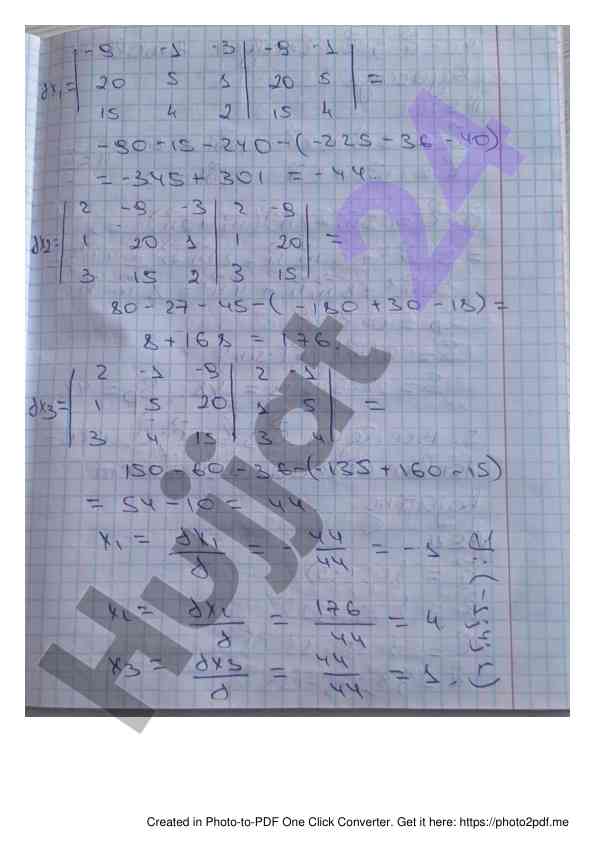 ∂x₁= | -9 -1 -3 | -9 -1 |
20 5 1 | 20 5 | =
15 4 2 | 15 4 |
-90-15-240-(-225-36-40)
= -345+301 = -44.
∂x2= | 2 -9 -3 | 2 -9 |
1 20 1 | 1 20 | =
3 15 2 | 3 15 |
80-27-45-(-180+30-18)=
8+168 = 176.
∂x3= | 2 -1 -9 | 2 -1 |
1 5 20 | 1 5 | =
3 4 15 | 3 4 |
150-60-36-(-135+160-15)
= 54-10 = 44
x₁ = ∂x₁/∂ = -44/44 = -1
x₂ = ∂x₂/∂ = 176/44 = 4
x3 = ∂x3/∂ = 44/44 = 1.
Hujjat 24
Created in Photo-to-PDF One Click Converter. Get it here: https://photo2pdf.me